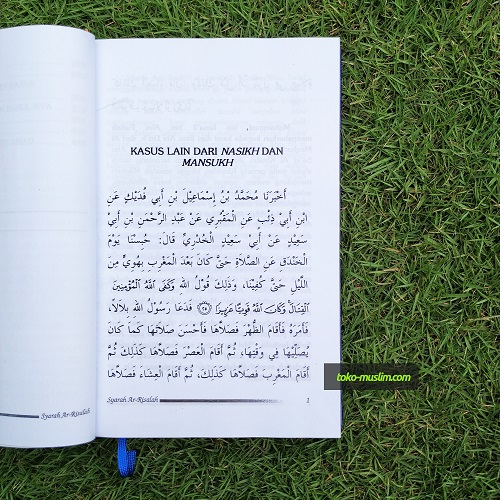 KASUS LAIN DARI NASIKH DAN
MANSUKH
أَخْبَرَنَا مُحَمَّدُ بْنُ إِسْمَاعِيْلَ بْنِ أَبِي فُدَيْكٍ عَنِ
ابْنِ أَبِي ذِئْبٍ عَنِ الْمَقْبُرِي عَنْ عَبْدِ الرَّحْمَنِ بْنِ أَبِي
سَعِيْدٍ عَنْ أَبِيْ سَعِيْدٍ الْخُدْرِيِّ قَالَ: حُبِسْنَا يَوْمَ
الْخَنْدَقِ عَنِ الصَّلَاةِ حَتَّى كَانَ بَعْدَ الْمَغْرِبِ بِهُوِيٍّ مِنَ
اللَّيْلِ حَتَّى كُفِيْنَا، وَذَلِكَ قَوْلُ اللهِ وَكَفَى اللَّهُ الْمُؤْمِنِينَ
الْقِتَالَ وَكَانَ اللَّهُ قَوِيًّا عَزِيزًا ﴿٢٥﴾ فَدَعَا رَسُوْلُ اللهِ بِلاَلاً،
فَأَمَرَهُ فَأَقَامَ الظُّهْرَ فَصَلاَّهَا فَأَحْسَنَ صَلاَتَهَا كَمَا كَانَ
يُصَلِّيْهَا فِي وَقْتِهَا، ثُمَّ أَقَامَ الْعَصْرَ فَصَلاَّهَا كَذَلِكَ ثُمَّ
أَقَامَ الْمَغْرِبَ فَصَلاَّهَا كَذَلِكَ، ثُمَّ أَقَامَ الْعِشَاءَ فَصَلاَّهَا
toko-muslim.com
Syarah Ar-Risalah
Syarah Ar-Risalah 1